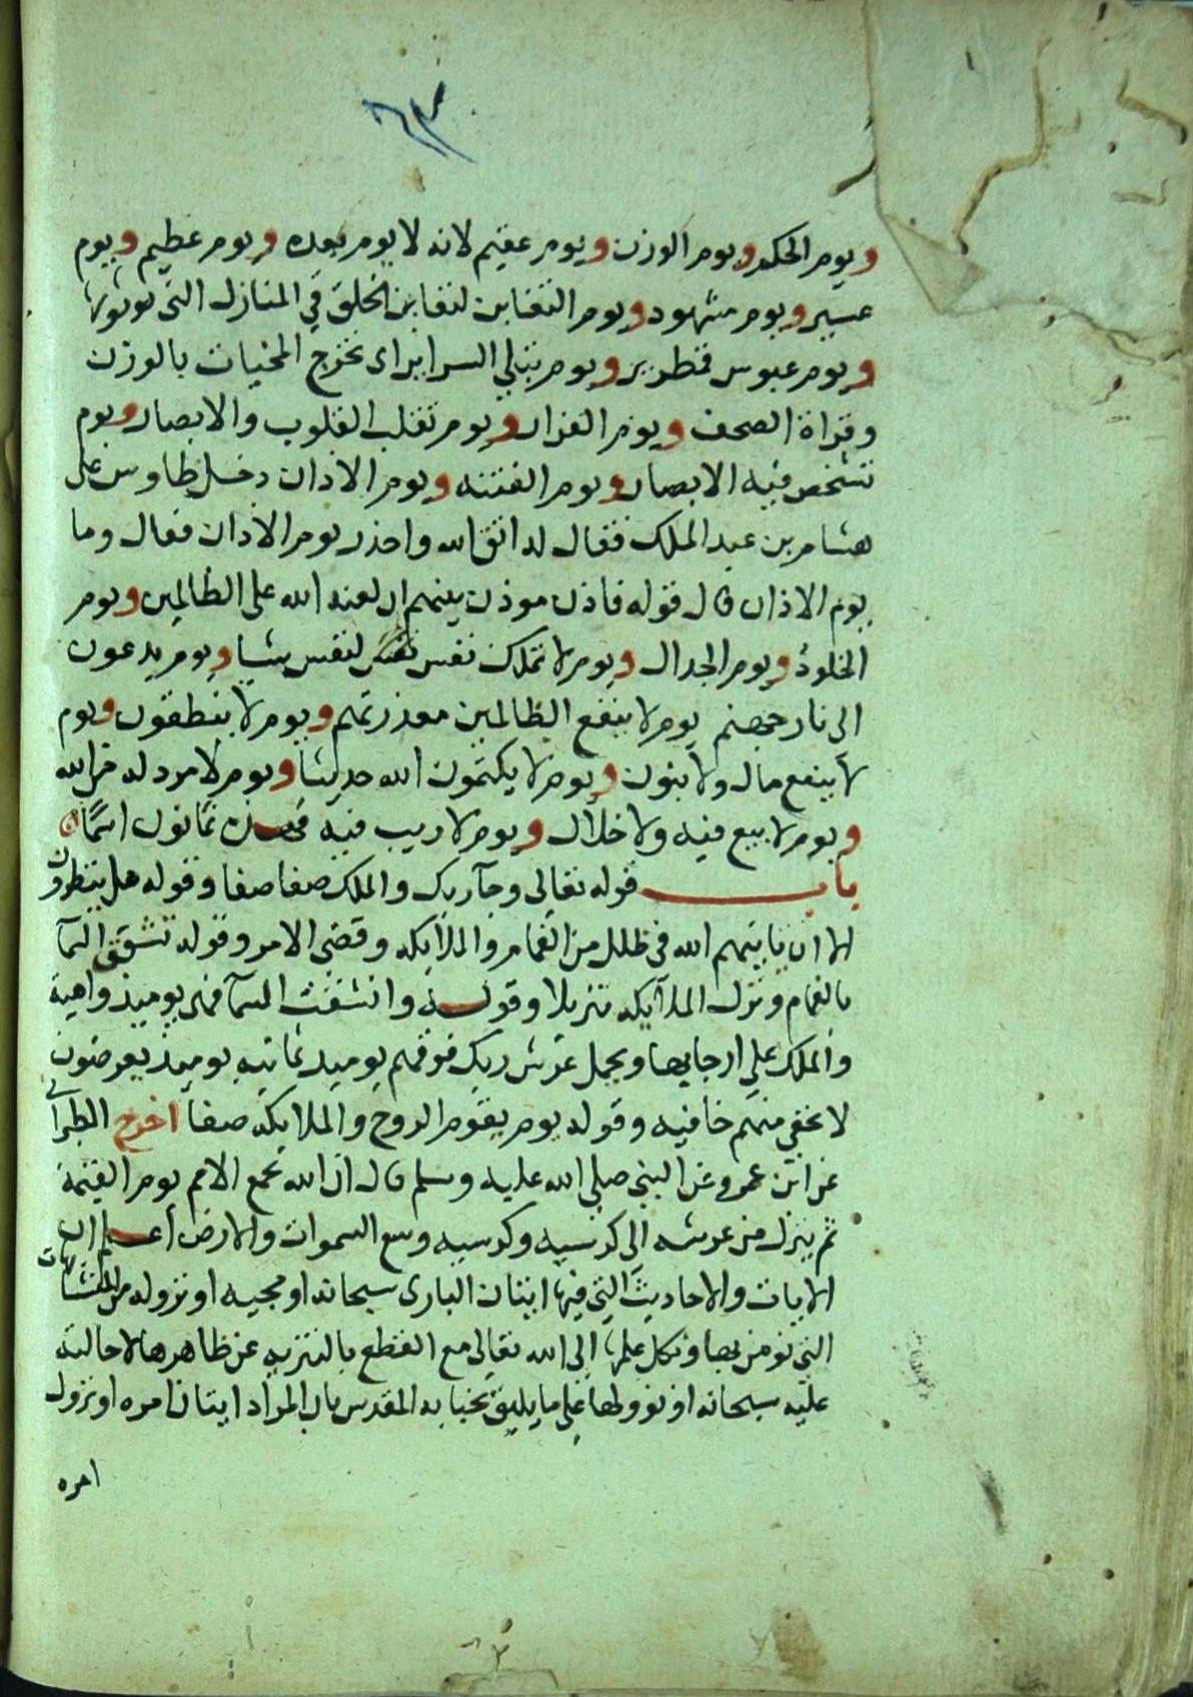 ويوم الحكم ويوم الوزن ويوم عقيم لانه لا يوم بعده ويوم عظيم ويوم
عسير ويوم مشهود ويوم التغابن لتغابن الخلق في المنازل التي نوبوها
ويوم عبوس قمطرير ويوم تبلي السراير اى تخرج المخبيات بالوزن
وقراة الصحف ويوم الفرار ويوم تقلب القلوب والابصار ويوم
تشخص فيه الابصار ويوم الفتنه ويوم الاذان دخل طاوس على
هشام بن عبد الملك فقال له اتق الله واحذر يوم الاذان فقال وما
يوم الاذان قال قوله فاذن موذن بينهم ان لعنه الله على الظالمين ويوم
الخلود ويوم الجدال ويوم لا تملك نفس لنفس شيا ويوم يدعون
الى نار جهنم يوم لا ينفع الظالمين معذرتهم ويوم لا ينطقون ويوم
لا ينفع مال ولا بنون ويوم لا يكتمون الله حديثا ويوم لا مرد له من الله
ويوم لا بيع فيه ولا خلال ويوم لا ريب فيه فهذه ثمانون اسمًا
باب قوله تعالى وجآ ربك والملك صفا صفا وقوله هل ينظرون
الا ان ياتيهم الله فى ظلل من الغمام والملايكه وقضى الامر وقوله تشقق السمآ
بالغمام ونزل الملآيكه تنزيلا وقوله وانشقت السمآ فهى يوميذ واهية
والملك على ارجايها ويحمل عرش ربك فوقهم يوميذ ثمانيه يوميذ تعرضون
لا تخفي منهم خافيه وقوله يوم يقوم الروح والملايكه صفا اخرج الطبرانى
عن ابن عمرو عن النبي صلى الله عليه وسلم قال ان الله يجمع الامم يوم القيمة
ثم ينزل من عرشه الى كرسيه وكرسيه وسع السموات والارض اعلم ان
الايات والاحاديث التي فيها اتيان البارى سبحانه او مجيه او نزوله من المتشابهات
التي نومن بها ونكل علمها الى الله تعالى مع القطع بالتنزيه عن ظاهرها لاحالته
عليه سبحانه او نوولها على ما يليق بجنابه المقدس بان المراد اتيان امره او نزول
امره